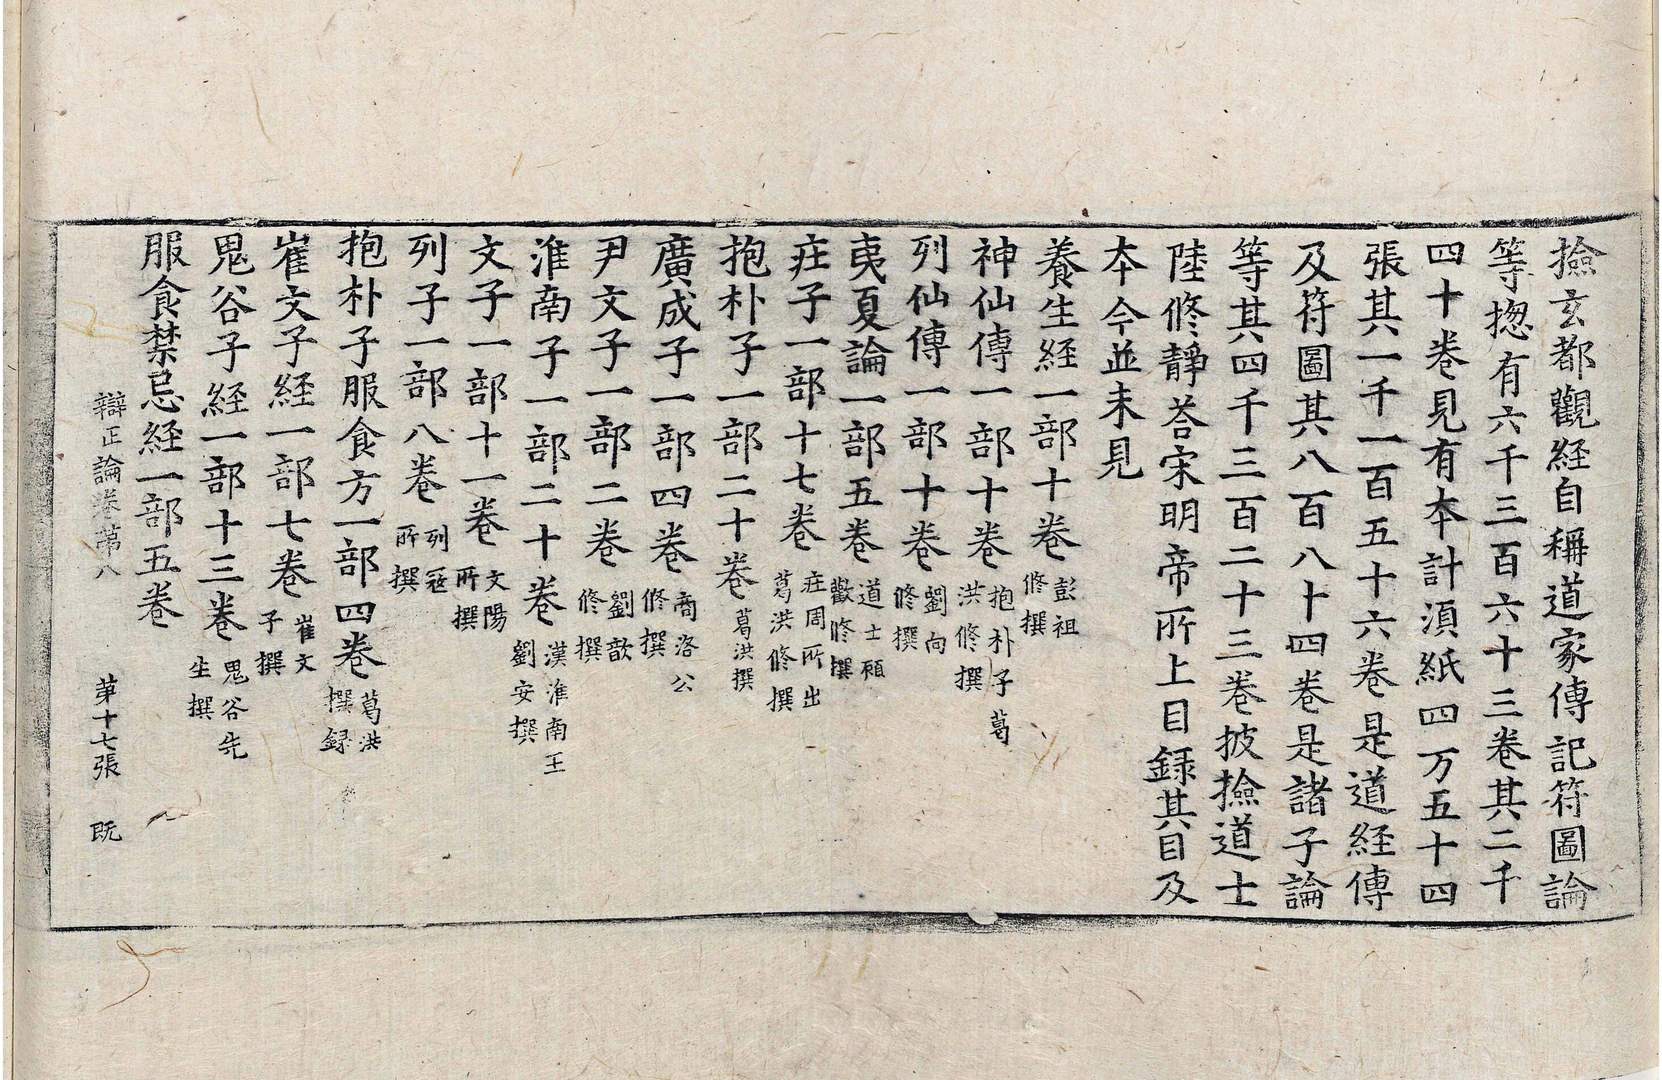 撿玄都觀経自稱道家傳記符圖論
等揔有六千三百六十三巻其二千
四十巻見有本計湏紙四万五十四
張其一千一百五十六巻是道経傳
及符圖其八百八十四巻是諸子論
等其四千三百二十三巻披撿道士
陸修靜荅宋明帝所上目録其目及
本今並未見
養生経一部十巻彭祖修撰
神仙傳一部十巻抱朴子葛洪修撰
列仙傳一部十巻劉向修撰
夷夏論一部五巻道士顧歡修撰
庄子一部十七巻庄周所出葛洪修撰
抱朴子一部二十巻葛洪撰
廣成子一部四巻商洛公修撰
尹文子一部二巻劉歆修撰
淮南子一部二十巻漢淮南王劉安撰
文子一部十一巻文陽所撰
列子一部八巻列宼所撰
抱朴子服食方一部四巻葛洪撰録
崔文子経一部七巻崔文子撰
鬼谷子経一部十三巻鬼谷先生撰
服食禁忌経一部五巻
辯正論巻苐八 苐十七張 既